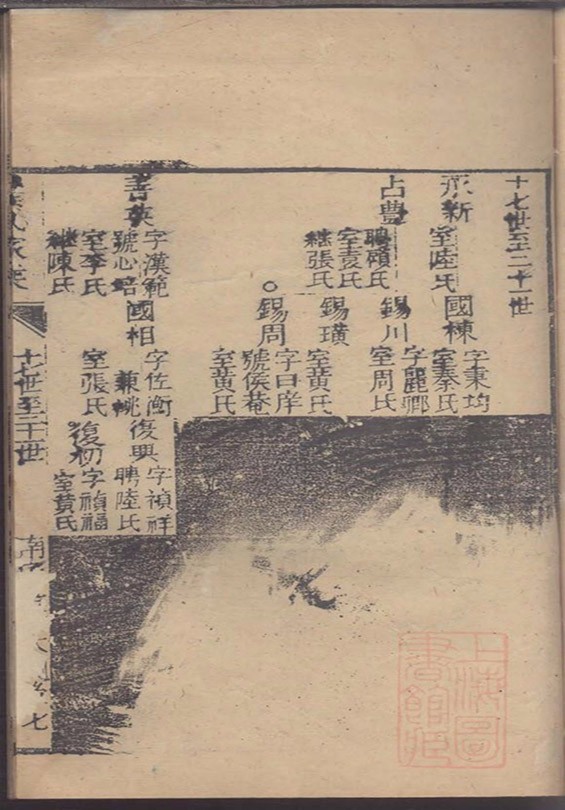 十七世至二十一世
永新
室陸氏
國棟
字秉均
室秦氏
占豊
聘顧氏
室袁氏
繼張氏
錫川
字麗卿
室周氏
錫璜
室黄氏
錫周
字曰庠
號侯菴
室黄氏
善
字漢範
號心培
室李氏
繼陳氏
國相
字佐衡
兼祧
室張氏
復興
字禎祥
聘陸氏
復初
字禎福
室黄氏
十七世至二十一世
七
上海圖書館